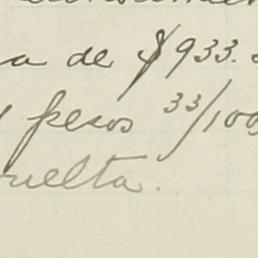 a de $933.
pesos 33/100
vuelta.